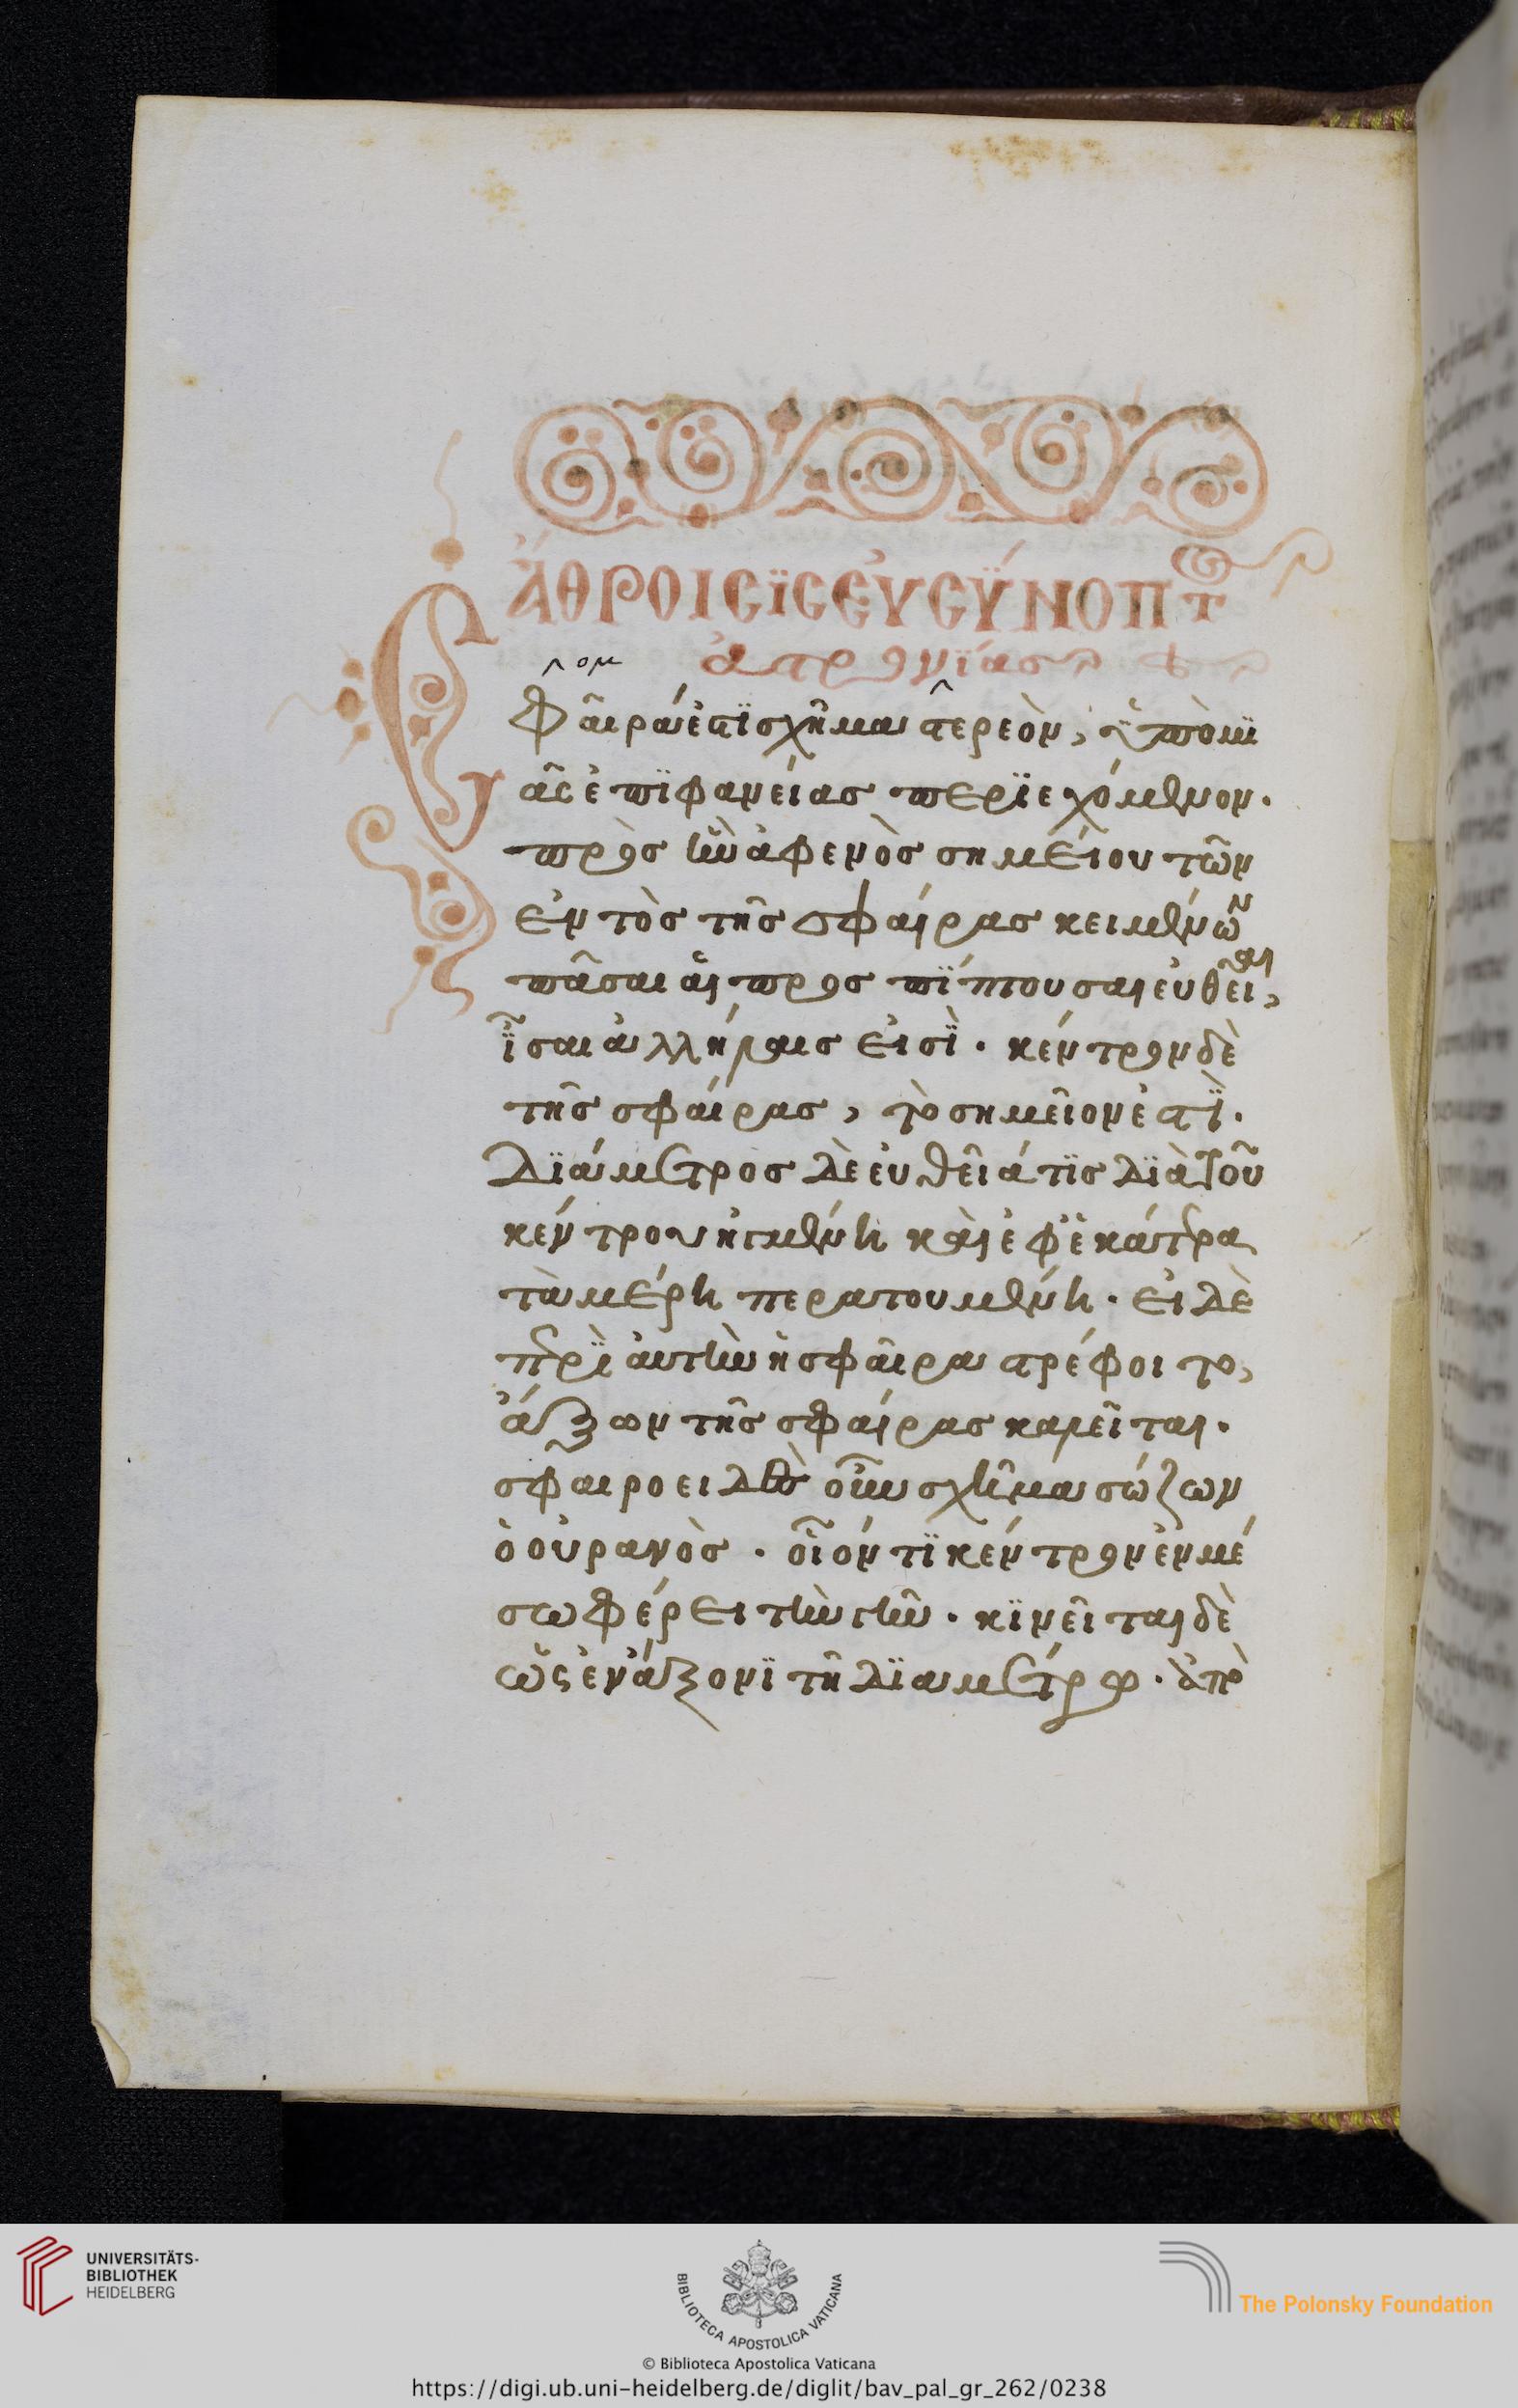 ἄθροισις εὐσύνοπτ
ἀστρονομίας
Σφαῖρά ἐστι σχῆμα στερεὸν, ὑπὸ μι
ᾶς ἐπιφανείας περιεχόμενον.
πρὸς ἣν ἀφενὸς σημείου τῶν
ἐντὸς τῆς σφαίρας κειμένων
πᾶσαι αἱ προσπίπτουσαι εὐθεῖαι,
ἶσαι ἀλλήλαις εἰσὶ. κέντρον δὲ
τῆς σφαίρας, τὸ σημεῖον ἐστὶ.
διάμετρος δὲ εὐθεῖά τις διὰ τοῦ
κέντρου ἠγμένη καὶ ἐφ' ἑκάτερα
τὰ μέρη περατουμένη. εἰ δὲ
περὶ αὐτὴν ἡ σφαῖρα στρέφοιτο,
ἄξων τῆς σφαίρας καλεῖται.
σφαιροειδὲς οὖν σχῆμα σώζων
ὁ οὐρανὸς. οἷόν τι κέντρον ἐν μέ
σω φέρει τὴν γῆν. κινεῖται δὲ
ὡς ἐν ἄξονι τῆ διαμέτρω. ἀπὸ
UNIVERSITÄTS-
BIBLIOTHEK
HEIDELBERG
BIBLIOTECA APOSTOLICA VATICANA
The Polonsky Foundation
© Biblioteca Apostolica Vaticana
https://digi.ub.uni-heidelberg.de/diglit/bav_pal_gr_262/0238